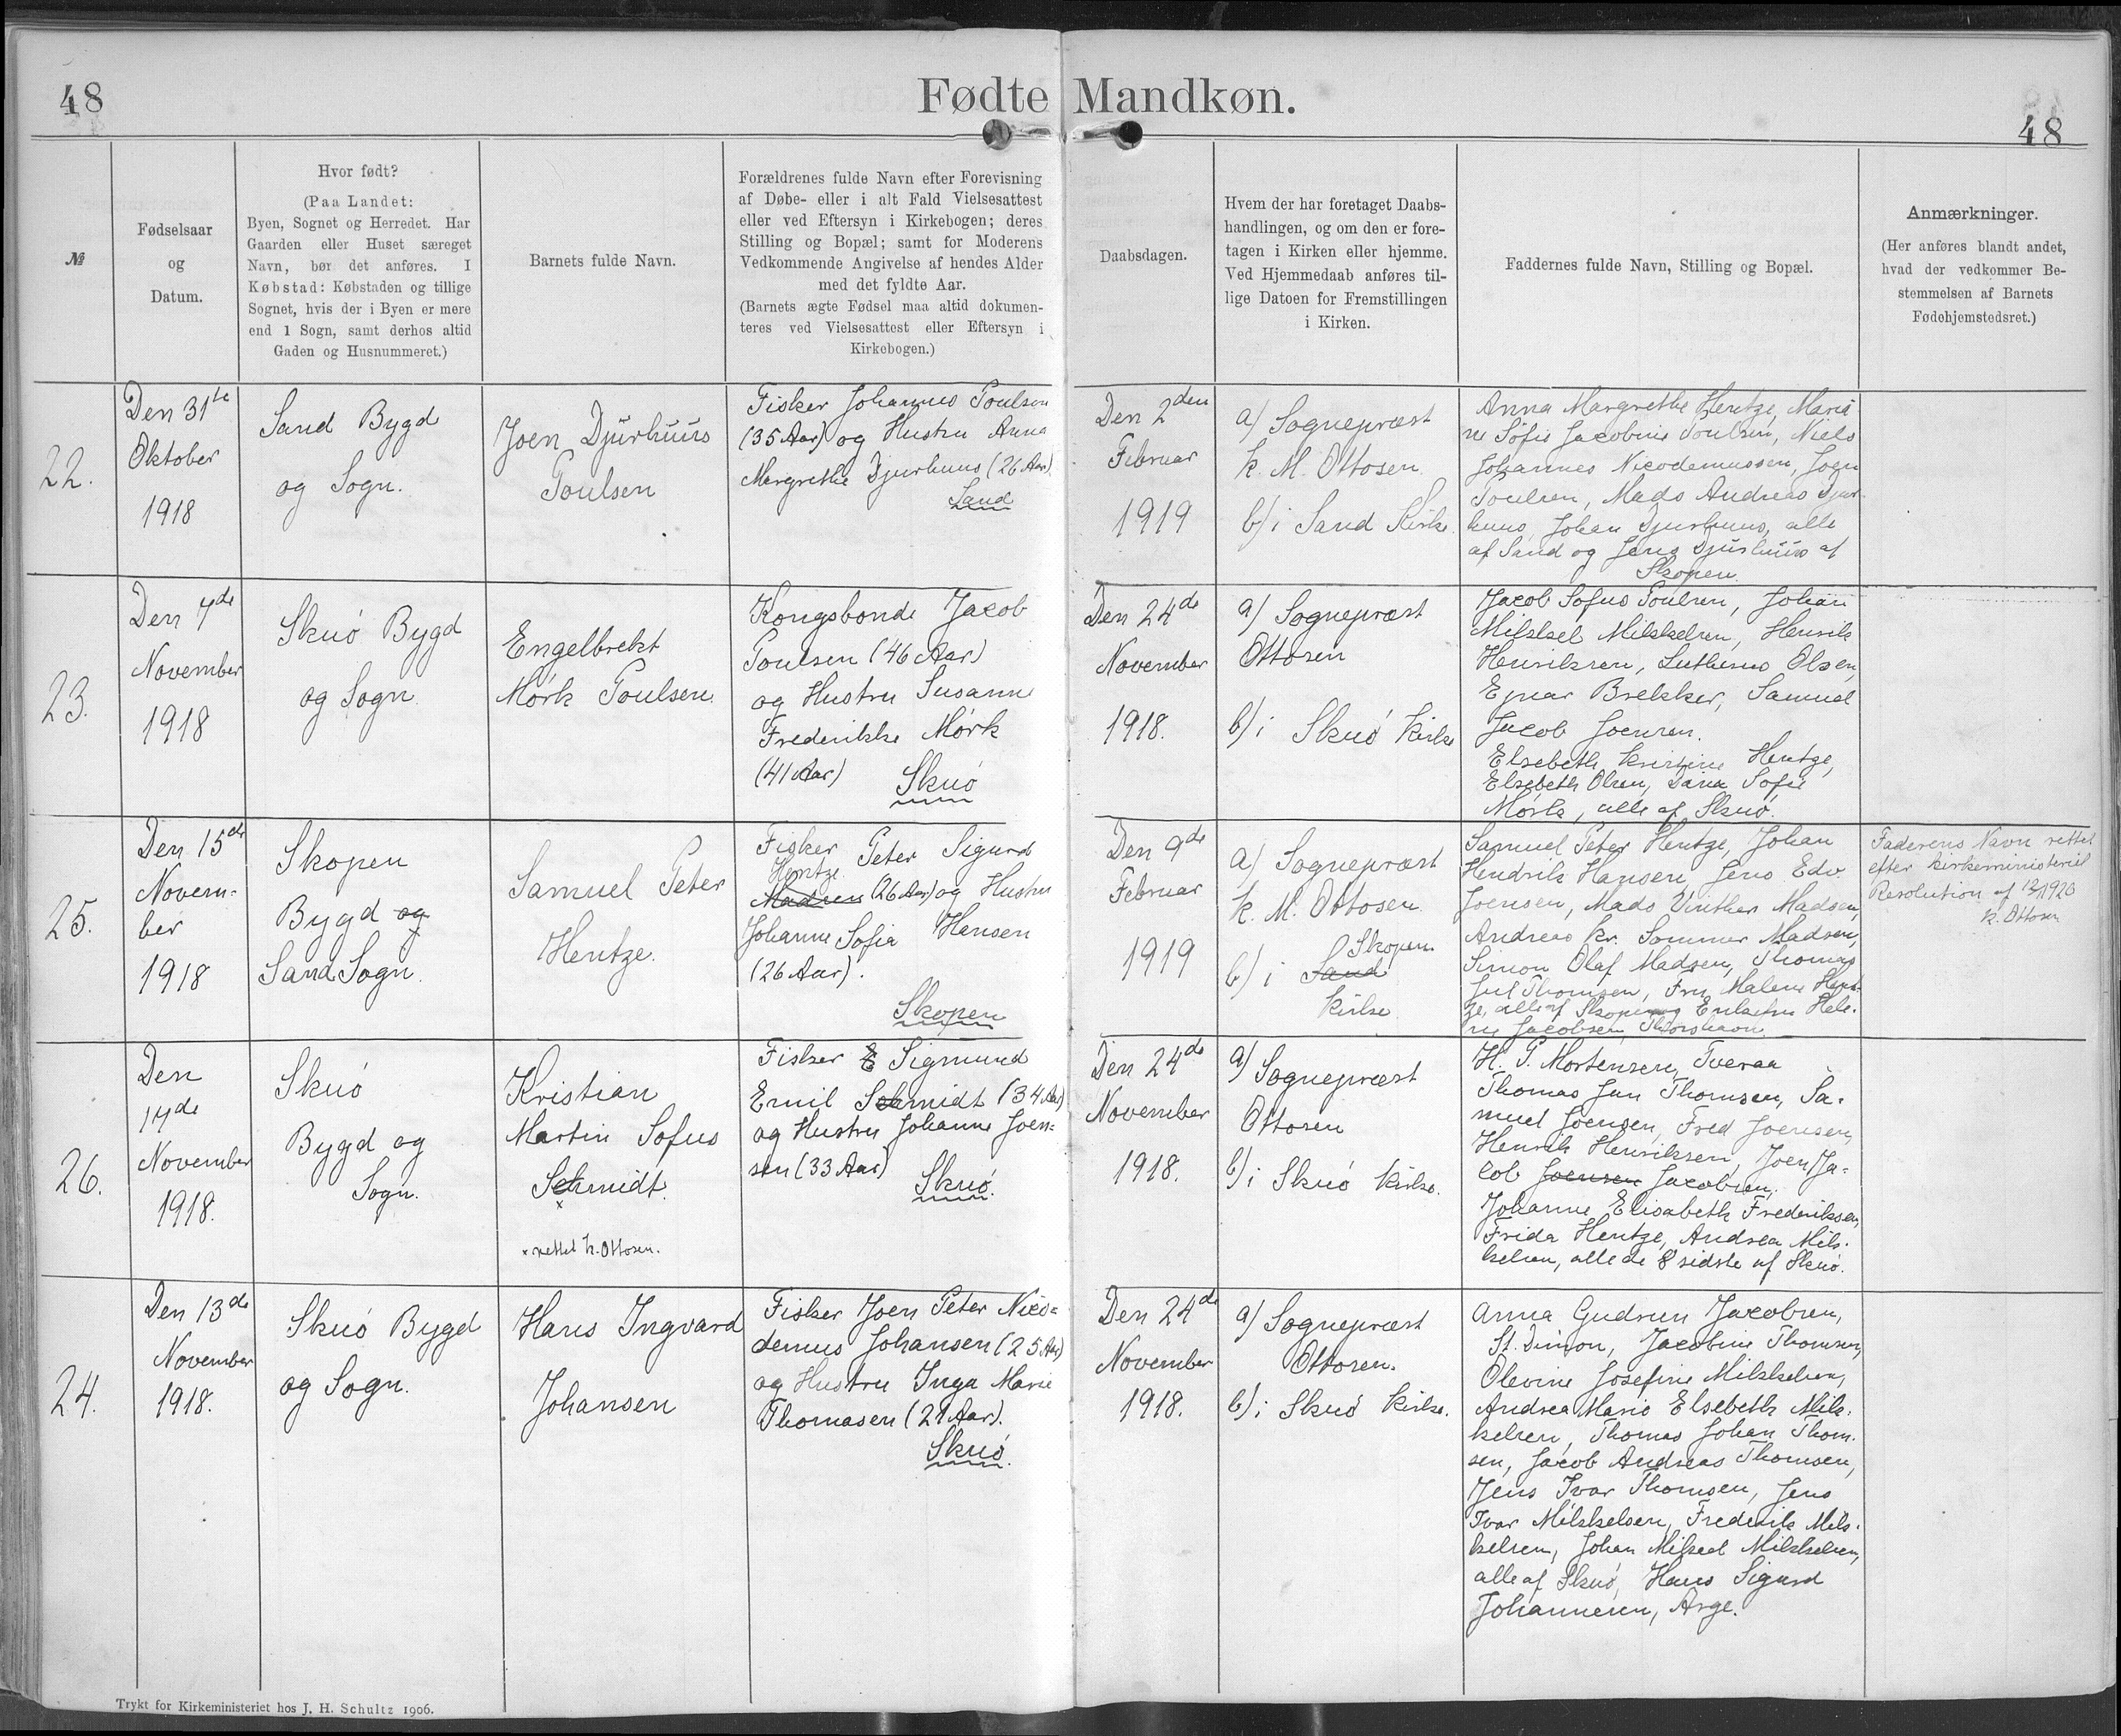 48
Fødte Mandkøn.
48
№
Fødselsaar
og
Datum.
Hvor født?
(Paa Landet:
Byen, Sognet og Herredet. Har
Gaarden eller Huset særeget
Navn, bør det anføres. I
Købstad: Købstaden og tillige
Sognet, hvis der i Byen er mere
end 1 Sogn, samt derhos altid
Gaden og Husnummeret.)
Barnets fulde Navn.
Forældrenes fulde Navn efter Forevisning
af Døbe- eller i alt Fald Vielsesattest
eller ved Eftersyn i Kirkebogen; deres
Stilling og Bopæl; samt for Moderens
Vedkommende Angivelse af hendes Alder
med det fyldte Aar.
(Barnets ægte Fødsel maa altid dokumen-
teres ved Vielsesattest eller Eftersyn i
Kirkebogen.)
Daabsdagen.
Hvem der har foretaget Daabs-
handlingen, og om den er fore-
tagen i Kirken eller hjemme.
Ved Hjemmedaab anføres til-
lige Datoen for Fremstillingen
i Kirken.
Faddernes fulde Navn, Stilling og Bopæl.
Anmærkninger.
(Her anføres blandt andet,
hvad der vedkommer Be-
stemmelsen af Barnets
Fødehjemstedsret.)
22.
Den 31te
Oktober
1918
Sand Bygd
og Sogn.
Joen Djurhuus
Poulsen
Fisker Johannes Poulsen
(35 Aar) og Hustru Anna
Margrethe Djurhuus (26 Aar)
Sand
Den 2den
Februar
1919
a) Sognepræst
K. M. Ottosen
b) i Sand Kirke
Anna Margrethe Hentze, Maria
ne Sofie Jacobine Poulsen, Niels
Johannes Nicodemussen, Jogn
Poulsen, Mads Andreas Djur-
huus, Johan Djurhuus, alle
af Sand og Jens Djurhuus af
Skopen.
23.
Den 7de
November
1918
Skuö Bygd
og Sogn
Engelbrekt
Mörk Poulsen
Kongsbonde Jacob
Poulsen (46 Aar)
og Hustru Susanne
Frederikke Mörk
(41 Aar)
Skuö
Den 24de
November
1918.
a) Sognepræst
Ottosen
b) i Skuö Kirke
Jacob Sofus Poulsen, Johan
Mikkel Mikkelsen, Henrik
Henriksen, Lutherus Olsen,
Ejnar Brekker, Samuel
Jacob Joensen.
Elsebeth Kristine Hentze,
Elsebeth Olsen, Daria Sofie
Mörk, alle af Skuö.
25.
Den 15de
Novem-
ber
1918
Skopen
Bygd og
Sand Sogn.
Samuel Peter
Hentze.
Fisker Peter Sigurd
Hentze
Madsen (26 Aar) og Hustru
Johanne Sofia Hansen
(26 Aar).
Skopen
Den 9de
Februar
1919
a) Sognepræst
K. M. Ottosen
Skopen
b) i Sand
Kirke
Samuel Peter Hentze, Johan
Hendrik Hansen, Jens Edv.
Joensen, Mads Vinther Madsen,
Andreas Kr. Sommer Madsen,
Simon Olaf Madsen, Thomas
Thomsen, Fru Malene Hent-
ze, alle af Skopen og Enkefru Hele-
ne Jacobsen Thorshavn
Faderens Navn rettet
efter Kirkeministeriel
Resolution af 1920
K. Ottosen
26.
Den
17de
November
1918.
Skuö
Bygd og
Sogn.
Kristian
Martin Sofus
Schmidt.
x
x rettet K. Ottosen.
Fisker E Sigmund
Emil Schmidt (34 Aar)
og Hustru Johanne Joen-
sen (33 Aar)
Skuö.
Den 24de
November
1918.
a) Sognepræst
Ottosen
b) i Skuö Kirke.
H. P. Mortensen, Tveraa
Thomas Jun Thomsen, Sa-
muel Joensen, Fred Joensen,
Henrik Henriksen, Joen Ja-
cob Joensen Jacobsen,
Johanne Elisabeth Frederiksen,
Frida Hentze, Andrea Mik-
kelsen, alle de 8 sidste af Skuö.
24.
Den 13de
November
1918.
Skuö Bygd
og Sogn.
Hans Ingvard
Johansen
Fisker Joen Peter Nico-
demus Johansen (25 Aar)
og Hustru Inga Marie
Thomasen (21 Aar).
Skuö.
Den 24de
November
1918.
a) Sognepræst
Ottosen.
b) i Skuö Kirke.
Anna Gudrun Jacobsen,
St. Dimon, Jacobine Thomsen,
Olevine Josefine Mikkelsen,
Andrea Marie Elsebeth Mik-
kelsen, Thomas Johan Thom-
sen, Jacob Andreas Thomsen,
Jens Ivar Thomsen, Jens
Ivar Mikkelsen, Frederik Mik-
kelsen, Johan Mikael Mikkelsen,
alle af Skuö, Hans Sigurd
Johannesen, Arge.
Trykt for Kirkeministeriet hos J. H. Schultz 1906.